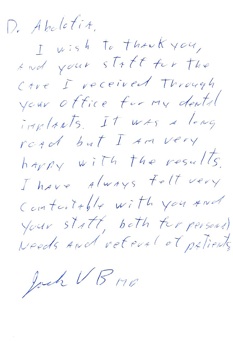 D. Abolafia,
I wish to thank you,
and your staff for the
care I received through
your office for my dental
implants. It was a long
road but I am very
happy with the results.
I have always felt very
comfortable with you and
your staff, both for personal
needs and referal of patients
Jack V B MD